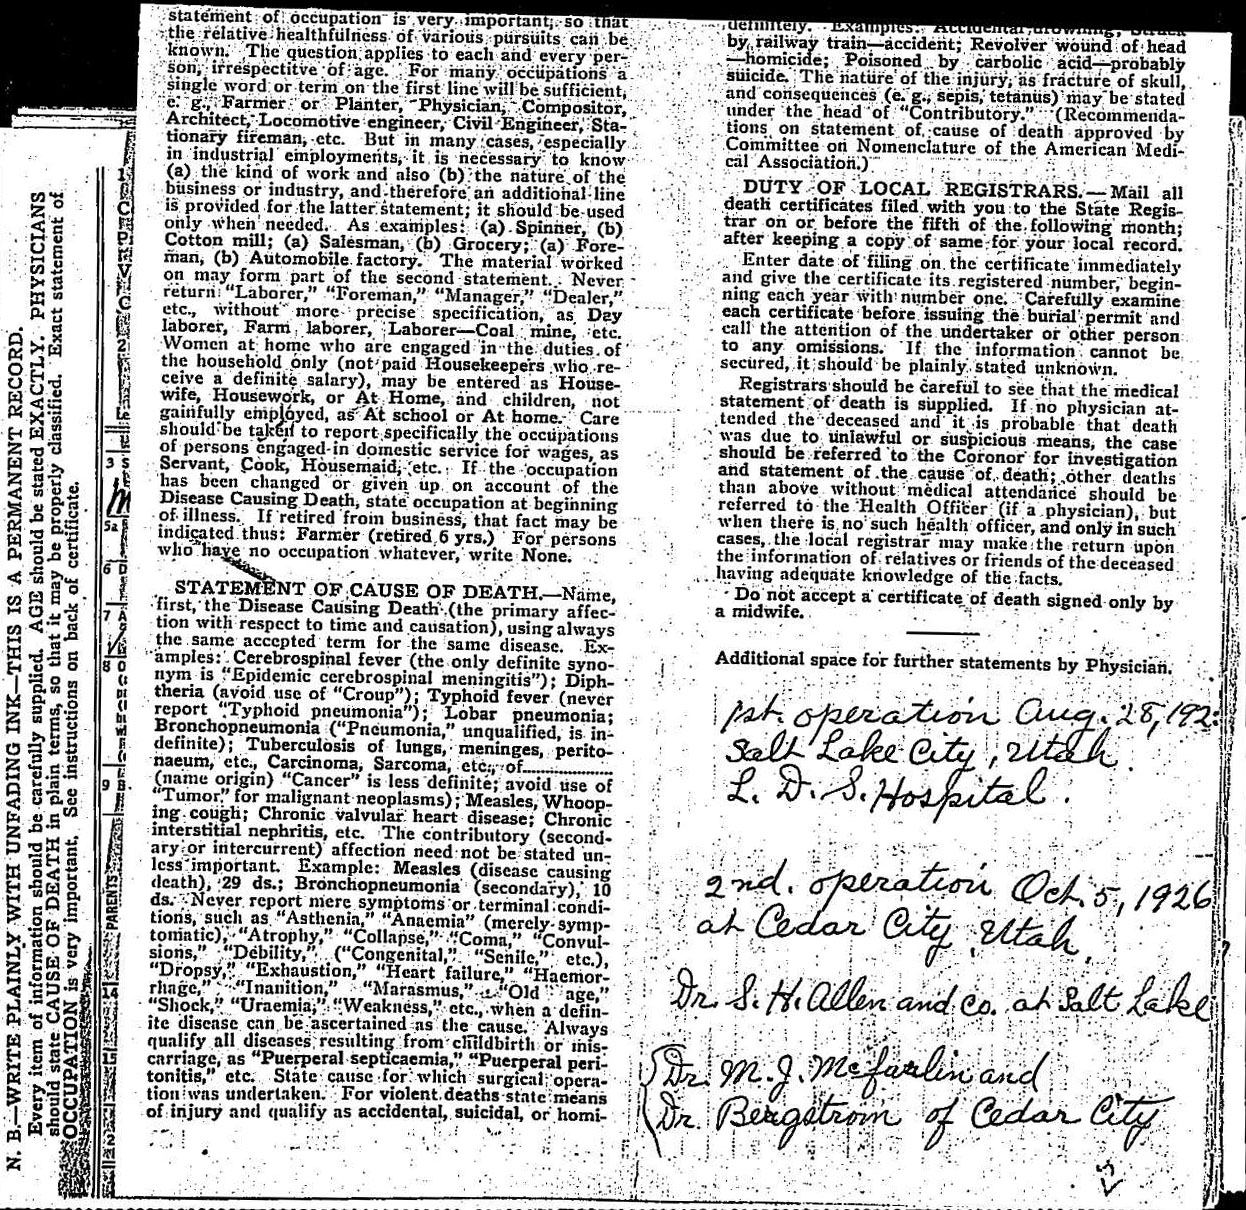 N. B.—WRITE PLAINLY WITH UNFADING INK—THIS IS A PERMANENT RECORD.
Every item of information should be carefully supplied. AGE should be stated EXACTLY. PHYSICIANS
should state CAUSE OF DEATH in plain terms, so that it may be properly classified. Exact statement of
OCCUPATION is very important. See instructions on back of certificate.
PARENTS
statement of occupation is very important, so that
the relative healthfulness of various pursuits can be
known. The question applies to each and every per-
son, irrespectitve of age. For many occupations a
single word or term on the first line will be sufficient,
e. g., Farmer or Planter, Physician, Compositor,
Architect, Locomotive engineer, Civil Engineer, Sta-
tionary fireman, etc. But in many cases, especially
in industrial employments, it is necessary to know
(a) the kind of work and also (b) the nature of the
business or industry, and therefore an additional line
is provided for the latter statement; it should be used
only when needed. As examples: (a) Spinner, (b)
Cotton mill; (a) Salesman, (b) Grocery; (a) Fore-
man, (b) Automobile factory. The material worked
on may form part of the second statement. Never
return "Laborer," "Foreman," "Manager," "Dealer,"
etc., without more precise specification, as Day
laborer, Farm laborer, Laborer—Coal mine, etc.
Women at home who are engaged in the duties of
the household only (not paid Housekeepers who re-
ceive a definite salary), may be entered as House-
wife, Housework, or At Home, and children, not
gainfully employed, as At school or At home. Care
should be taken to report specifically the occupations
of persons engaged in domestic service for wages, as
Servant, Cook, Housemaid, etc. If the occupation
has been changed or given up on account of the
Disease Causing Death, state occupation at beginning
of illness. If retired from business, that fact may be
indicated thus: Farmer (retired 6 yrs.) For persons
who have no occupation whatever, write None.
STATEMENT OF CAUSE OF DEATH.—Name,
first, the Disease Causing Death (the primary affec-
tion with respect to time and causation), using always
the same accepted term for the same disease. Ex-
amples: Cerebrospinal fever (the only definite syno-
nym is "Epidemic cerebrospinal meningitis"); Diph-
theria (avoid use of "Croup"); Typhoid fever (never
report "Typhoid pneumonia"); Lobar pneumonia;
Bronchopneumonia ("Pneumonia," unqualified, is in-
definite); Tuberculosis of lungs, meninges, perito-
naeum, etc., Carcinoma, Sarcoma, etc., of..................
(name origin) "Cancer" is less definite; avoid use of
"Tumor" for malignant neoplasms); Measles, Whoop-
ing cough; Chronic valvular heart disease; Chronic
interstitial nephritis, etc. The contributory (second-
ary or intercurrent) affection need not be stated un-
less important. Example: Measles (disease causing
death), 29 ds.; Bronchopneumonia (secondary), 10
ds. Never report mere symptoms or terminal condi-
tions, such as "Asthenia," "Anaemia" (merely symp-
tomatic), "Atrophy," "Collapse," "Coma," "Convul-
sions," "Debility," ("Congenital," "Senile," etc.),
"Dropsy," "Exhaustion," "Heart failure," "Haemor-
rhage," "Inanition," "Marasmus," "Old age,"
"Shock," "Uraemia," "Weakness," etc., when a defin-
ite disease can be ascertained as the cause. Always
qualify all diseases resulting from childbirth or mis-
carriage, as "Puerperal septicaemia," "Puerperal peri-
tonitis," etc. State cause for which surgical opera-
tion was undertaken. For violent deaths state means
of injury and qualify as accidental, suicidal, or homi-
definitely. Examples: Accidental drowning, Struck
by railway train—accident; Revolver wound of head
—homicide; Poisoned by carbolic acid—probably
suicide. The nature of the injury, as fracture of skull,
and consequences (e. g., sepis, tetanus) may be stated
under the head of "Contributory." (Recommenda-
tions on statement of cause of death approved by
Committee on Nomenclature of the American Medi-
cal Association.)
DUTY OF LOCAL REGISTRARS.—Mail all
death certificates filed with you to the State Regis-
trar on or before the fifth of the following month;
after keeping a copy of same for your local record.
Enter date of filing on the certificate immediately
and give the certificate its registered number, begin-
ning each year with number one. Carefully examine
each certificate before issuing the burial permit and
call the attention of the undertaker or other person
to any omissions. If the information cannot be
secured, it should be plainly stated unknown.
Registrars should be careful to see that the medical
statement of death is supplied. If no physician at-
tended the deceased and it is probable that death
was due to unlawful or suspicious means, the case
should be referred to the Coronor for investigation
and statement of the cause of death; other deaths
than above without medical attendance should be
referred to the Health Officer (if a physician), but
when there is no such health officer, and only in such
cases, the local registrar may make the return upon
the information of relatives or friends of the deceased
having adequate knowledge of the facts.
Do not accept a certificate of death signed only by
a midwife.
Additional space for further statements by Physician.
1st. operation Aug. 28, 192
Salt Lake City, Utah.
L. D. S. Hospital.
2nd. operation Oct. 5, 1926
at Cedar City, Utah.
Dr. S. H. Allen and Co. at Salt Lake
Dr. M. J. Mcfarlin and
Dr. Bergstrom of Cedar City